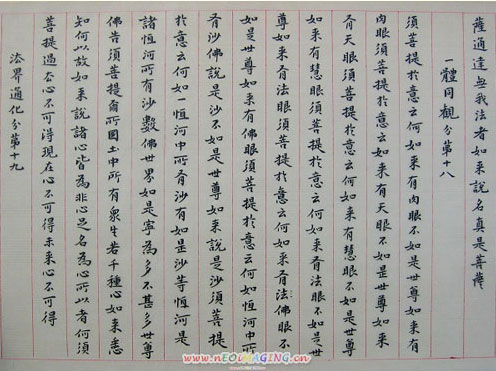 薩通達無我法者如来說名真是菩薩
一體同觀分第十八
須菩提於意云何如来有肉眼不如是世尊如来有
肉眼須菩提於意云何如来有天眼不如是世尊如来
有天眼須菩提於意云何如来有慧眼不如是世尊
如来有慧眼須菩提於意云何如来有法眼不如是世
尊如来有法眼須菩提於意云何如来有佛眼不
如是世尊如来有佛眼須菩提於意云何如恒河中所
有沙佛說是沙不如是世尊如来說是沙須菩提
於意云何如一恒河中所有沙有如是沙等恒河是
諸恒河所有沙數佛世界如是寧為多不甚多世尊
佛告須菩提爾所國土中所有眾生若干種心如来悉
知何以故如来說諸心皆為非心是名為心所以者何須
菩提過去心不可得現在心不可得未来心不可得
法界通化分第十九
www.nEOiMAGING.cn